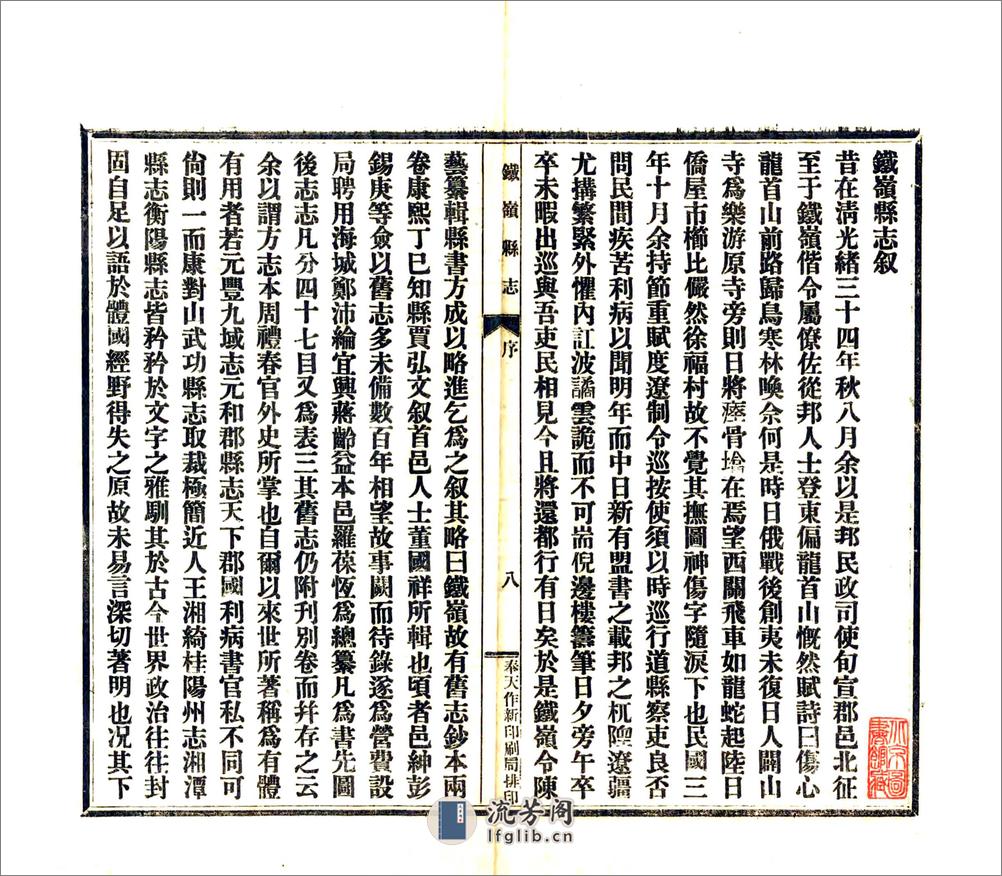 鐵嶺縣志叙
昔在淸光緒三十四年秋八月余以是邦民政司使旬宣郡邑北征
至于鐵嶺偕令屬僚佐從邦人士登東偏龍首山慨然賦詩曰傷心
龍首山前路歸鳥寒林喚奈何是時日俄戰後創夷未復日人闢山
寺爲樂游原寺旁則日將瘞骨墖在焉望西關飛車如龍蛇起陸日
僑屋市櫛比儼然徐福村故不覺其撫圖神傷字隨淚下也民國三
年十月余持節重賦度遼制令巡按使須以時巡行道縣察吏良否
問民間疾苦利病以聞明年而中日新有盟書之載邦之杌隉遼疆
尤搆繁緊外懼內訌波譎雲詭而不可耑倪邊樓籌筆日夕旁午卒
卒未暇出巡與吾吏民相見今且將還都行有日矣於是鐵嶺令陳
鐵嶺縣志 序 八 奉天作新印刷局排印
藝纂輯縣書方成以略進乞爲之叙其略曰鐵嶺故有舊志鈔本兩
卷康熙丁巳知縣賈弘文叙首邑人士董國祥所輯也頃者邑紳彭
錫庚等僉以舊志多未備數百年相望故事闕而待錄遂爲營費設
局聘用海城鄭沛綸宜興蔣齡益本邑羅葆恆爲總纂凡爲書先圖
後志志凡分四十七目又爲表三其舊志仍附刊別卷而幷存之云
余以謂方志本周禮春官外史所掌也自爾以來世所著稱爲有體
有用者若元豐九域志元和郡縣志天下郡國利病書官私不同可
尙則一而康對山武功縣志取裁極簡近人王湘綺桂陽州志湘潭
縣志衡陽縣志皆矜矜於文字之雅馴其於古今世界政治往往封
固自足以語於體國經野得失之原故未易言深切著明也况其下
流芳阁
lfglib.cn